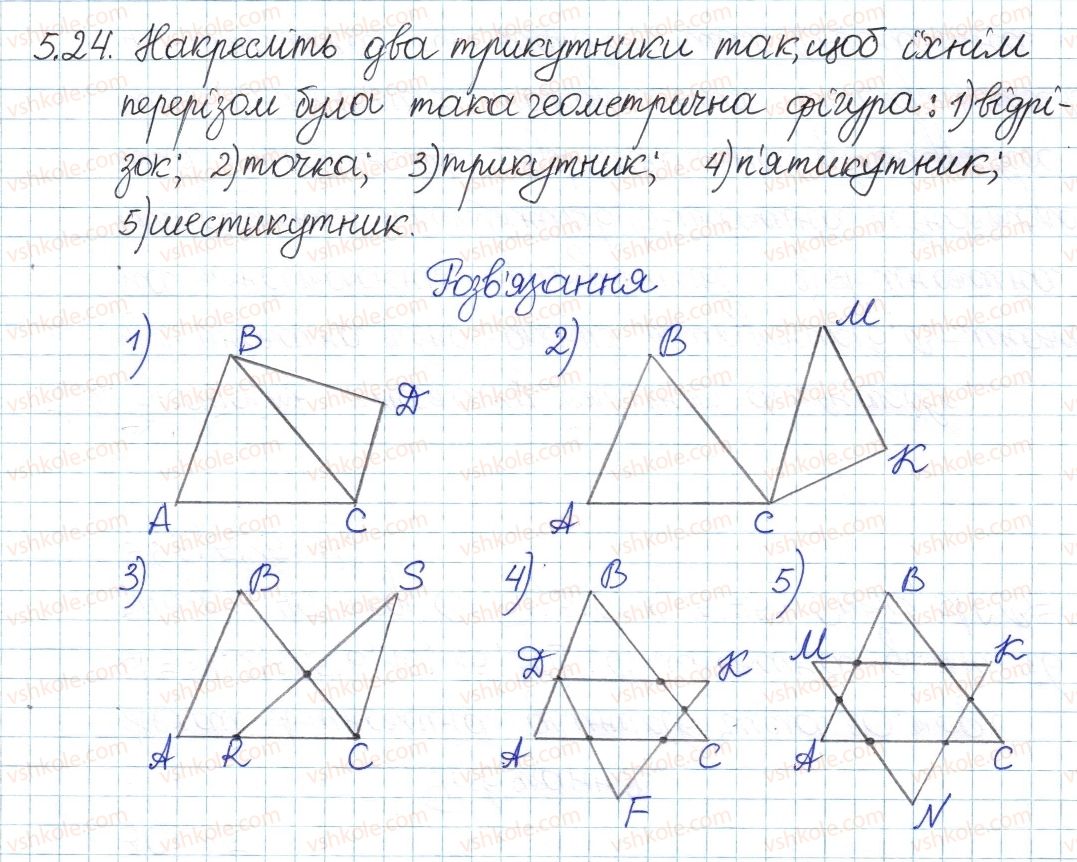 5.24. Накресліть два трикутники так, щоб їхнім
перерізом була така геометрична фігура: 1) відрі-
зок; 2) точка; 3) трикутник; 4) п'ятикутник;
5) шестикутник.
Розв'язання
1) B D A C
2) B M K A C
3) B S A R C
4) B D K A C F
5) B M K A C N
vshkole.com